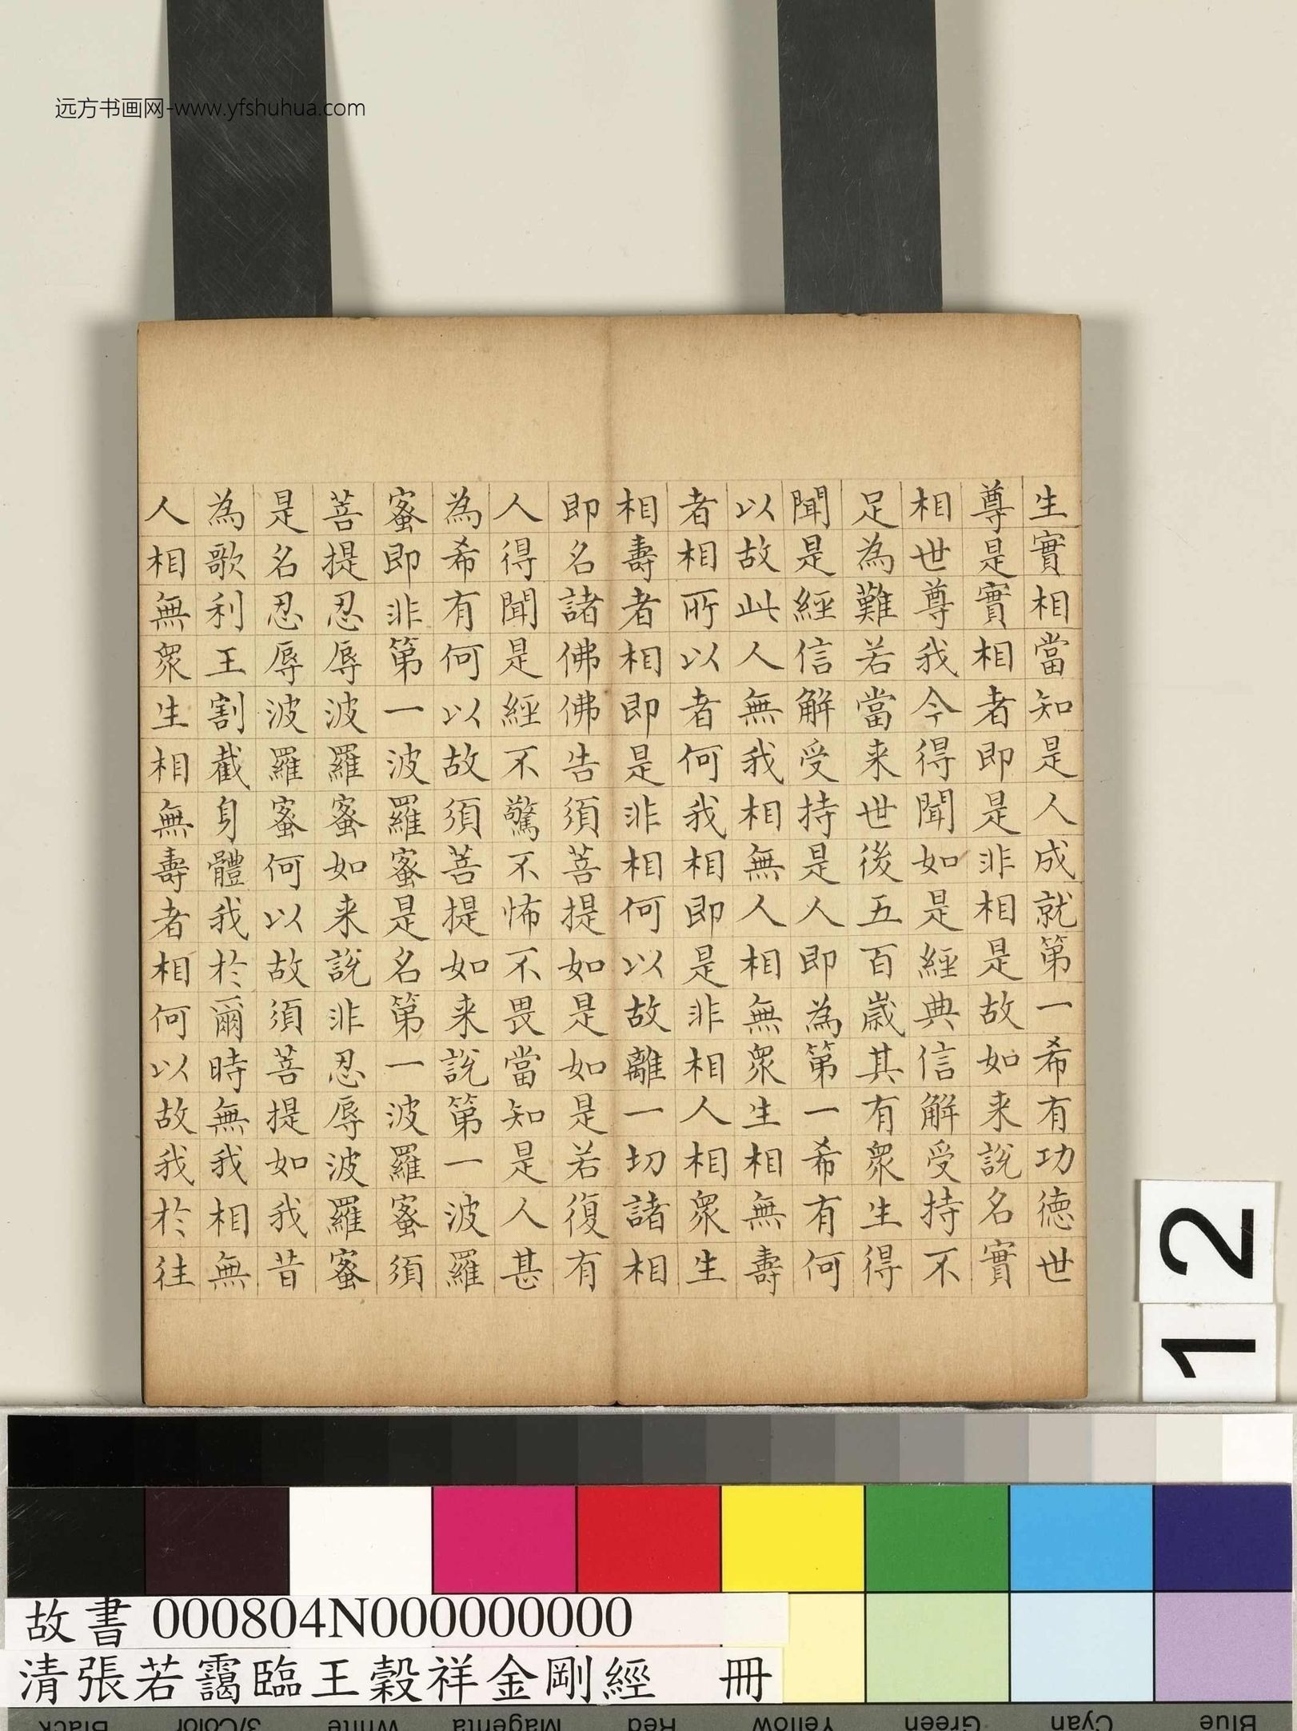 远方书画网-www.yfshuhua.com
生實相當知是人成就第一希有功德世
尊是實相者即是非相是故如来說名實
相世尊我今得聞如是經典信解受持不
足為難若當来世後五百歲其有衆生得
聞是經信解受持是人即為第一希有何
以故此人無我相無人相無衆生相無壽
者相所以者何我相即是非相人相衆生
相壽者相即是非相何以故離一切諸相
即名諸佛佛告須菩提如是如是若復有
人得聞是經不驚不怖不畏當知是人甚
為希有何以故須菩提如来說第一波羅
蜜即非第一波羅蜜是名第一波羅蜜須
菩提忍辱波羅蜜如来說非忍辱波羅蜜
是名忍辱波羅蜜何以故須菩提如我昔
為歌利王割截身體我於爾時無我相無
人相無衆生相無壽者相何以故我於往
12
故書 000804N000000000
清張若靄臨王穀祥金剛經 冊
Black 3/Color White Magenta Red Yellow Green Cyan Blue